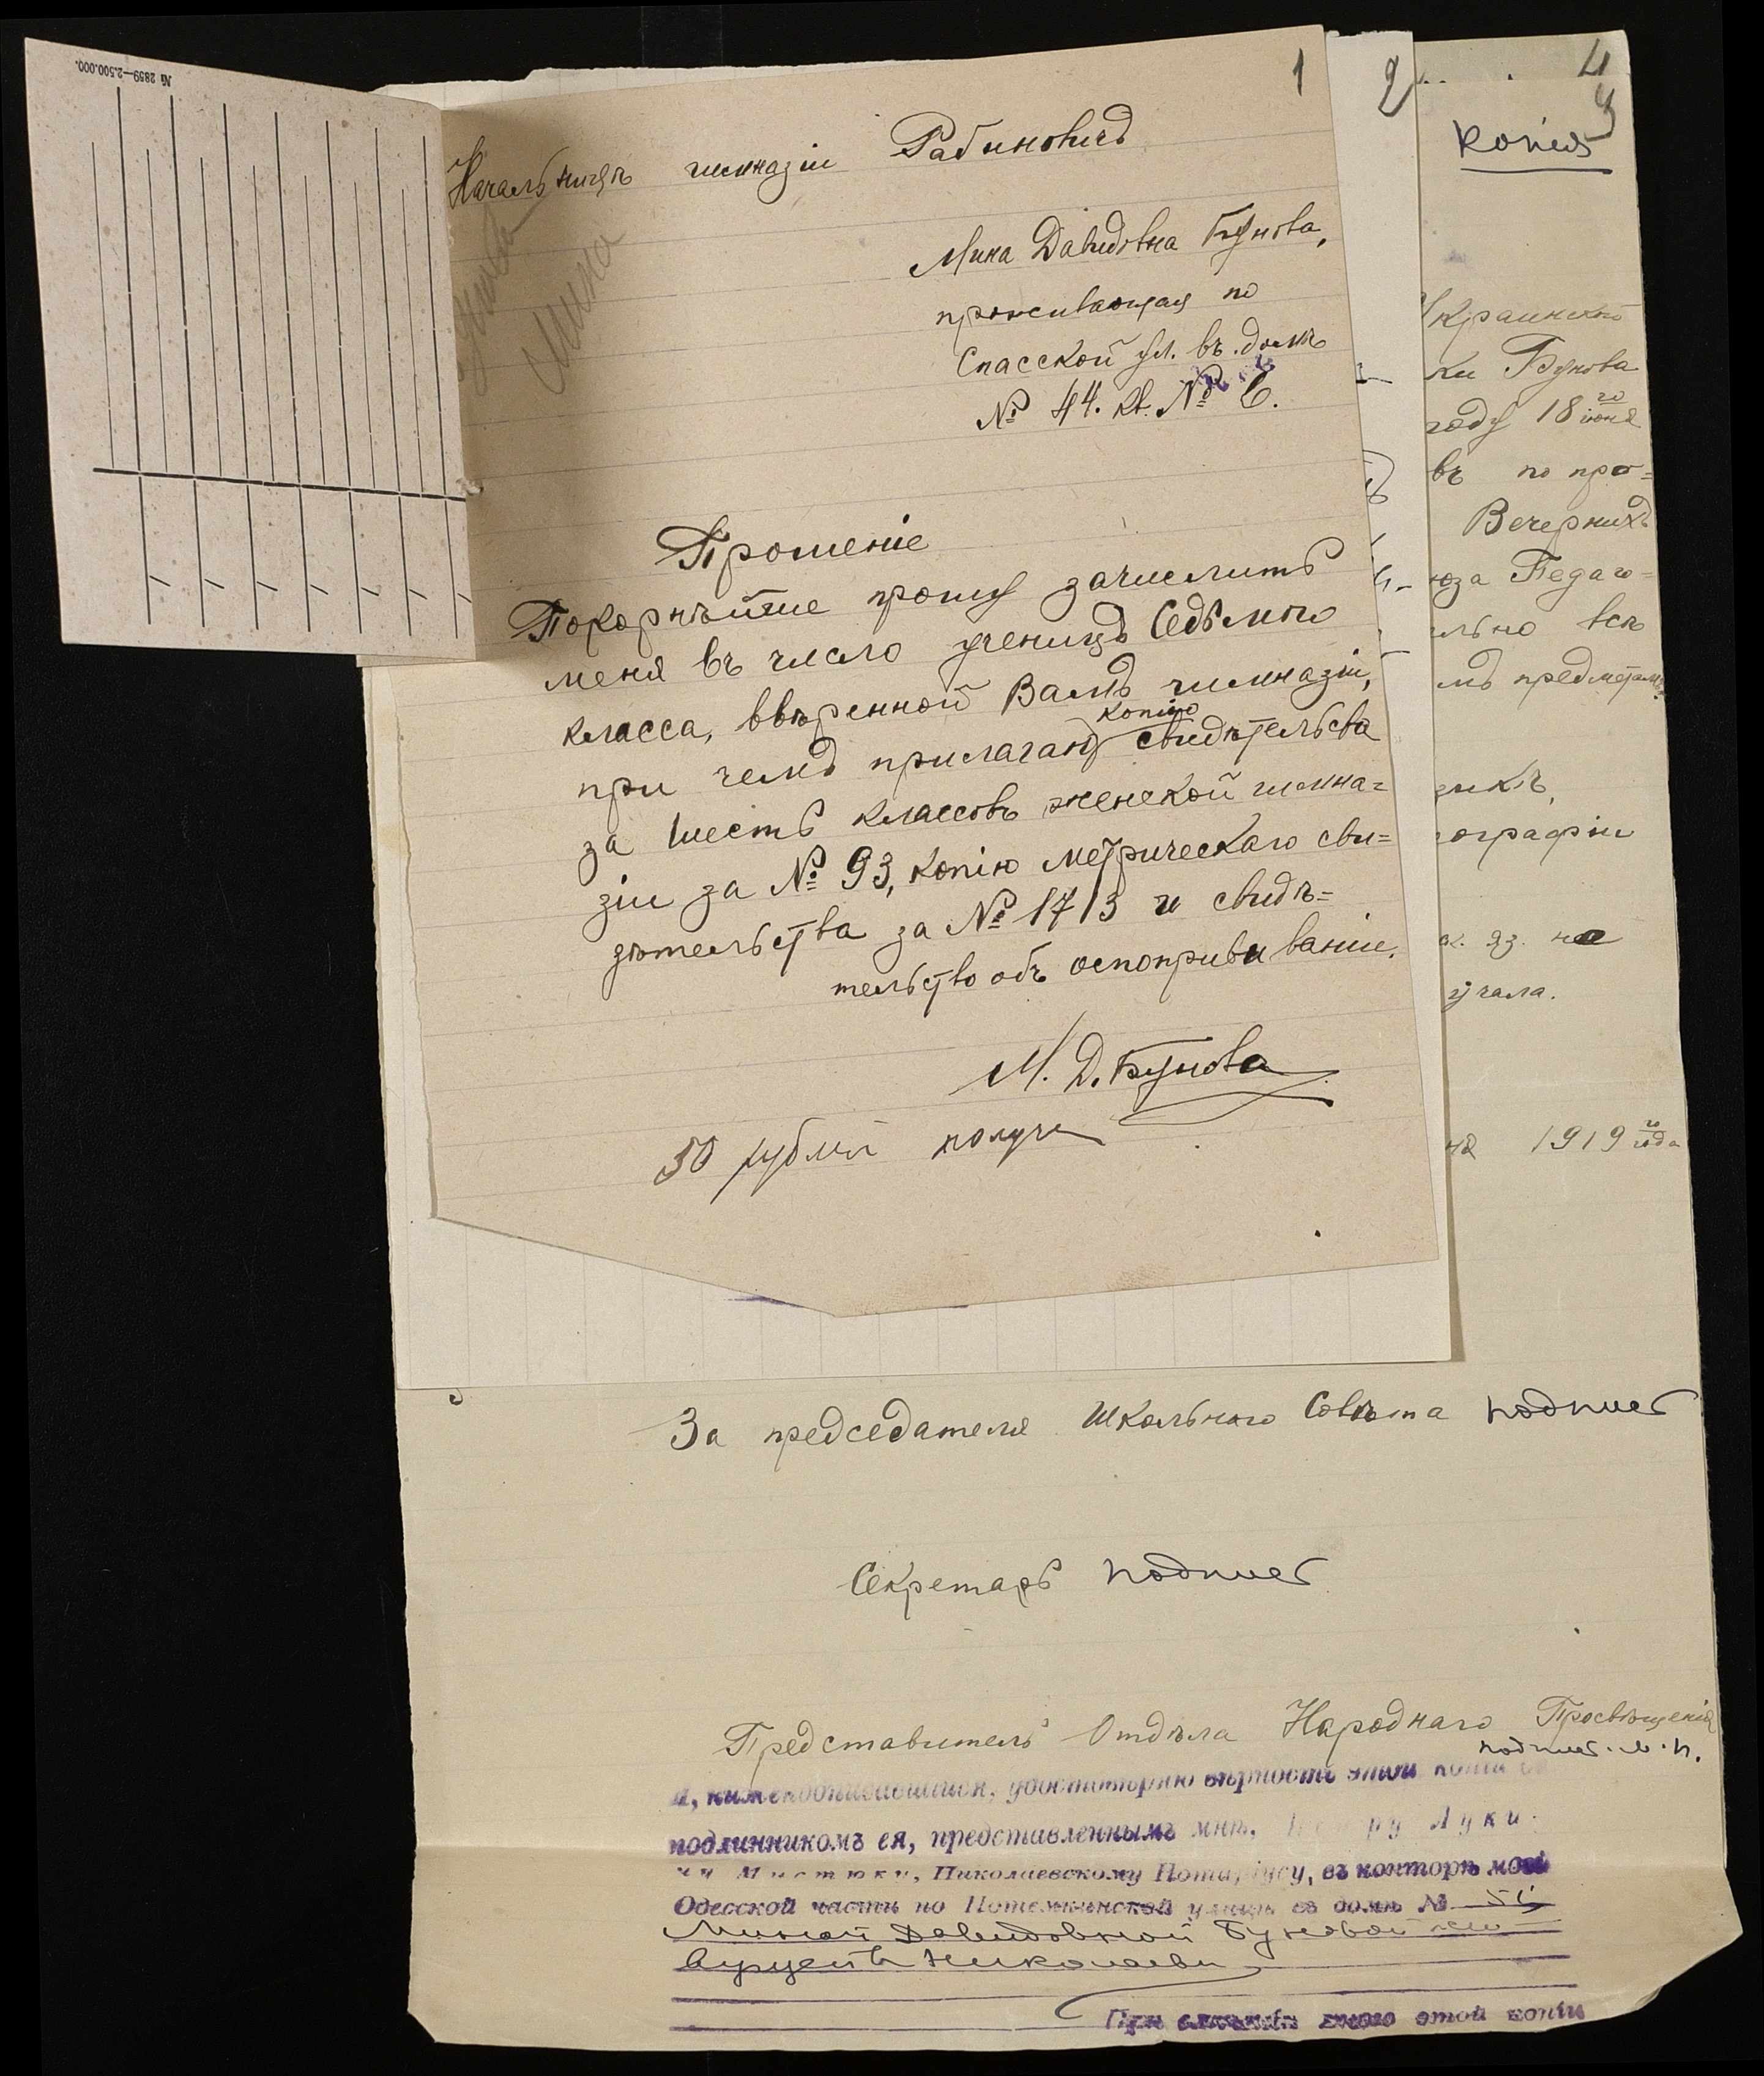 № 2859—2.500.000.
1
2
4
Копія
Начальницѣ гимназіи Рабиновичъ
Мина Давидовна Бунова,
проживающая по
Спасской ул. въ домѣ
№ 44. кв. № 6.
Мина
Прошеніе
Покорнѣйше прошу зачислить
меня въ число ученицъ Седьмого
класса, ввѣренной Вамъ гимназіи,
при чемъ прилагаю копію свидѣтельства
за шесть классовъ женской гимна=
зіи за № 93, копію метрическаго сви=
дѣтельства за № 1713 и свидѣ=
тельство объ оспопрививаніи.
М. Д. Бунова
50 рублей получ
Украинской
ки Бунова
году 18го іюня
въ по про=
Вечернихъ
юза Педаго=
льно всѣ
мъ предметамъ
зыкѣ,
ографіи
к. яз. не
учала.
1919го года
За председателя Школьного Совѣта подпись
Секретарь подпись
Представитель Отдѣла Народнаго Просвѣщенія
подпись. М. П.
я, нижеподписавшійся, удостовѣряю вѣрность этой копіи съ
подлинникомъ ея, представленнымъ мнѣ, Луки
Николаевскому Нотаріусу, въ конторѣ моей
Одесской части по Потемкинской улицѣ въ домѣ №
Миной Давидовной Буновой жи
вущей въ Николаевѣ
При сличеніи мною этой копіи